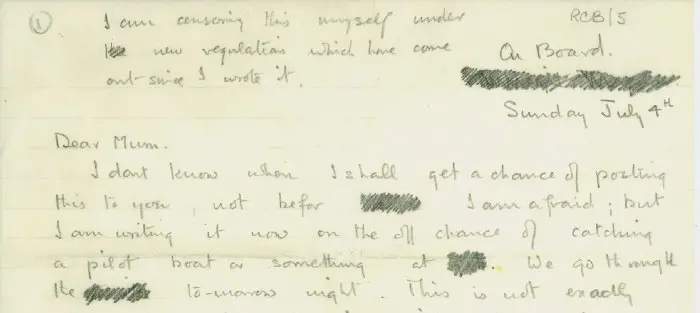 ① I am censoring this myself under RCB/5
the new regulations which have come On Board.
out since I wrote it.
Sunday July 4th
Dear Mum.
I dont know when I shall get a chance of posting
this to you, not befor I am afraid; but
I am writing it now on the off chance of catching
a pilot boat or something at . We go through
the to-morrow night. This is not exactly